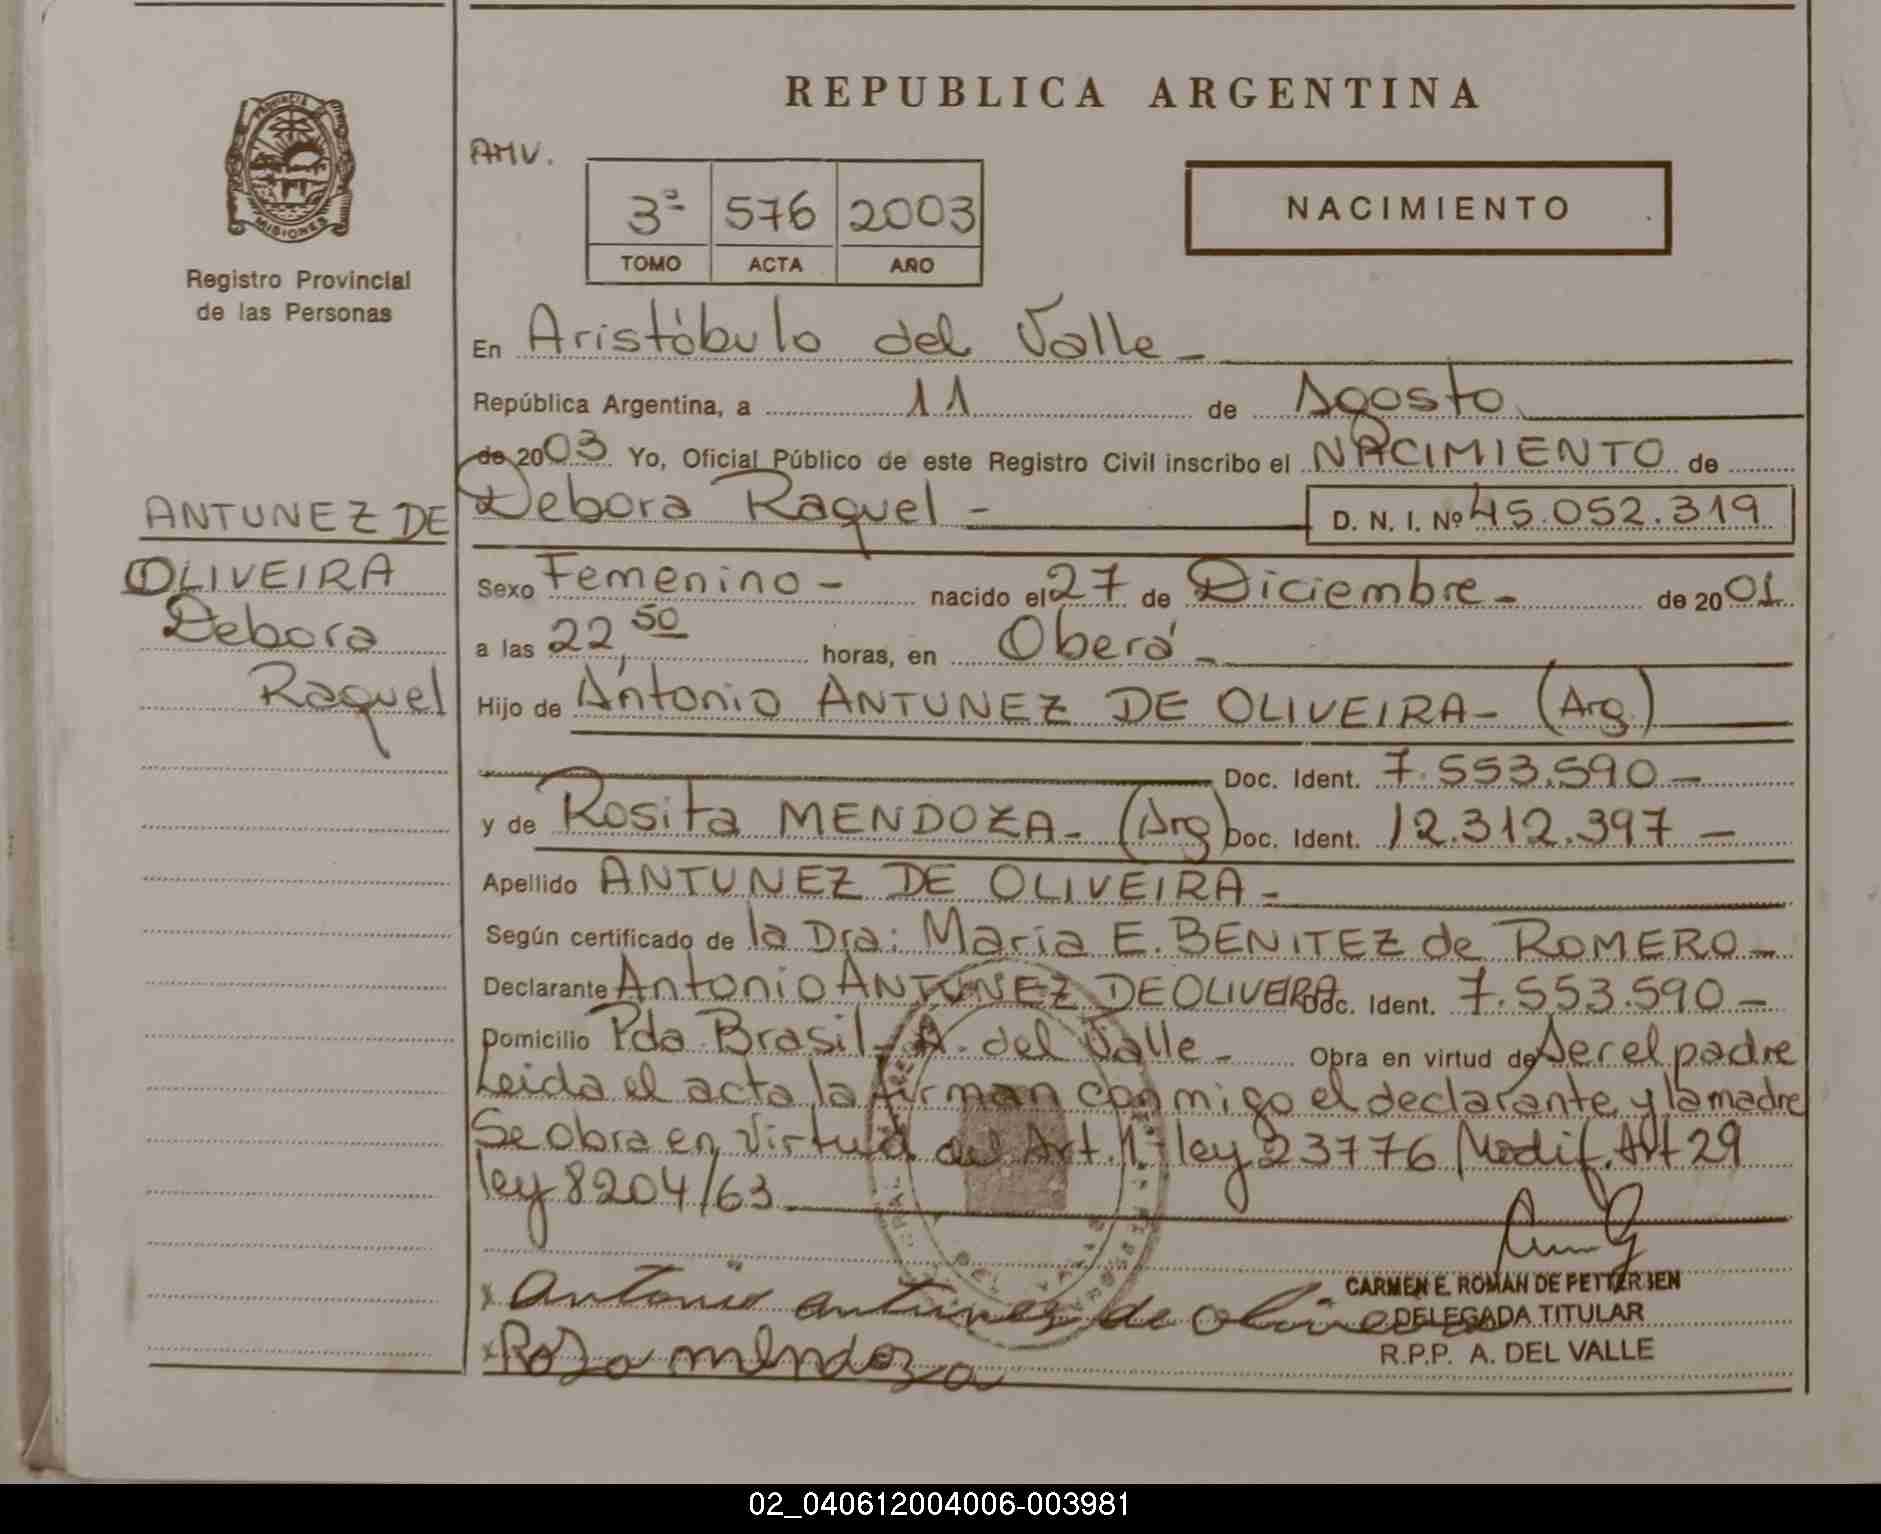 REPUBLICA ARGENTINA
PROVINCIA
MISIONES
Registro Provincial
de las Personas
AMV.
3ª 576 2003
TOMO ACTA AÑO
NACIMIENTO
En Aristóbulo del Valle -
República Argentina, a 11 de Agosto
de 2003 Yo, Oficial Público de este Registro Civil inscribo el NACIMIENTO de
Debora Raquel - D. N. I. Nº 45.052.319
ANTUNEZ DE
OLIVEIRA
Debora
Raquel
Sexo Femenino - nacido el 27 de Diciembre - de 2001
a las 22,50 horas, en Oberá -
Hijo de Antonio ANTUNEZ DE OLIVEIRA - (Arg.)
Doc. Ident. 7.553.590 -
y de Rosita MENDOZA - (Arg) Doc. Ident. 12.312.397 -
Apellido ANTUNEZ DE OLIVEIRA -
Según certificado de la Dra: Maria E. BENITEZ de ROMERO -
Declarante Antonio ANTUNEZ DE OLIVEIRA Doc. Ident. 7.553.590 -
Domicilio Pda. Brasil - A. del Valle - Obra en virtud de Ser el padre
Leida el acta la firman conmigo el declarante y la madre
Se obra en virtud del Art. 1º ley 23776 Modif. Art 29
ley 8204/63
x Antonio antunez de oliveira
x Rosa mendoza
CARMEN E. ROMAN DE PETTERSEN
DELEGADA TITULAR
R.P.P. A. DEL VALLE
02_040612004006-003981